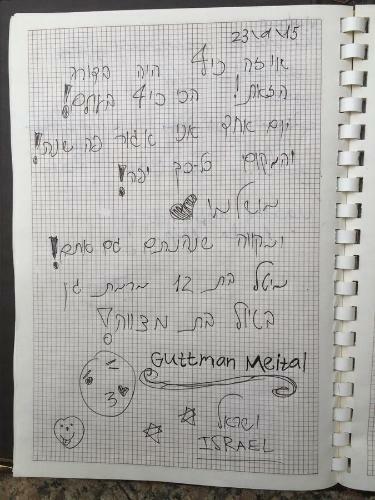 23\9\15
איזה כיף היה בדרך
הזאת! הכי כיף בעולם!
יום אחד אני אגור פה שנה!
והמקום כל-כך יפה!
מושלמי
ומקווה שנהנתם גם אתם!
מיטל בת 12 מרמת גן
בטיול בת מצווה!
Guttman Meital
ישראל
ISRAEL